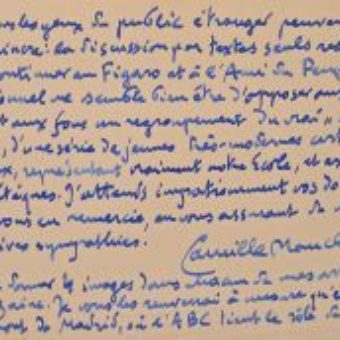 les yeux du public étranger peuvent
la discussion par textes seuls res
continuer au Figaro et à l'Ami du Peup
nel me semble bien être d'opposer aux
et aux fous un regroupement du vrai «
, d'une série de jeunes très modernes
x, représentant vraiment notre École, et
J'attends impatiemment vos do
vous en remercie, en vous assurant de
ives sympathies.
Camille Mauc
donner les images dans chacun de mes
Je vous les renverrai à mesure qu'e
de Madrid, où l'ABC tient le rôle